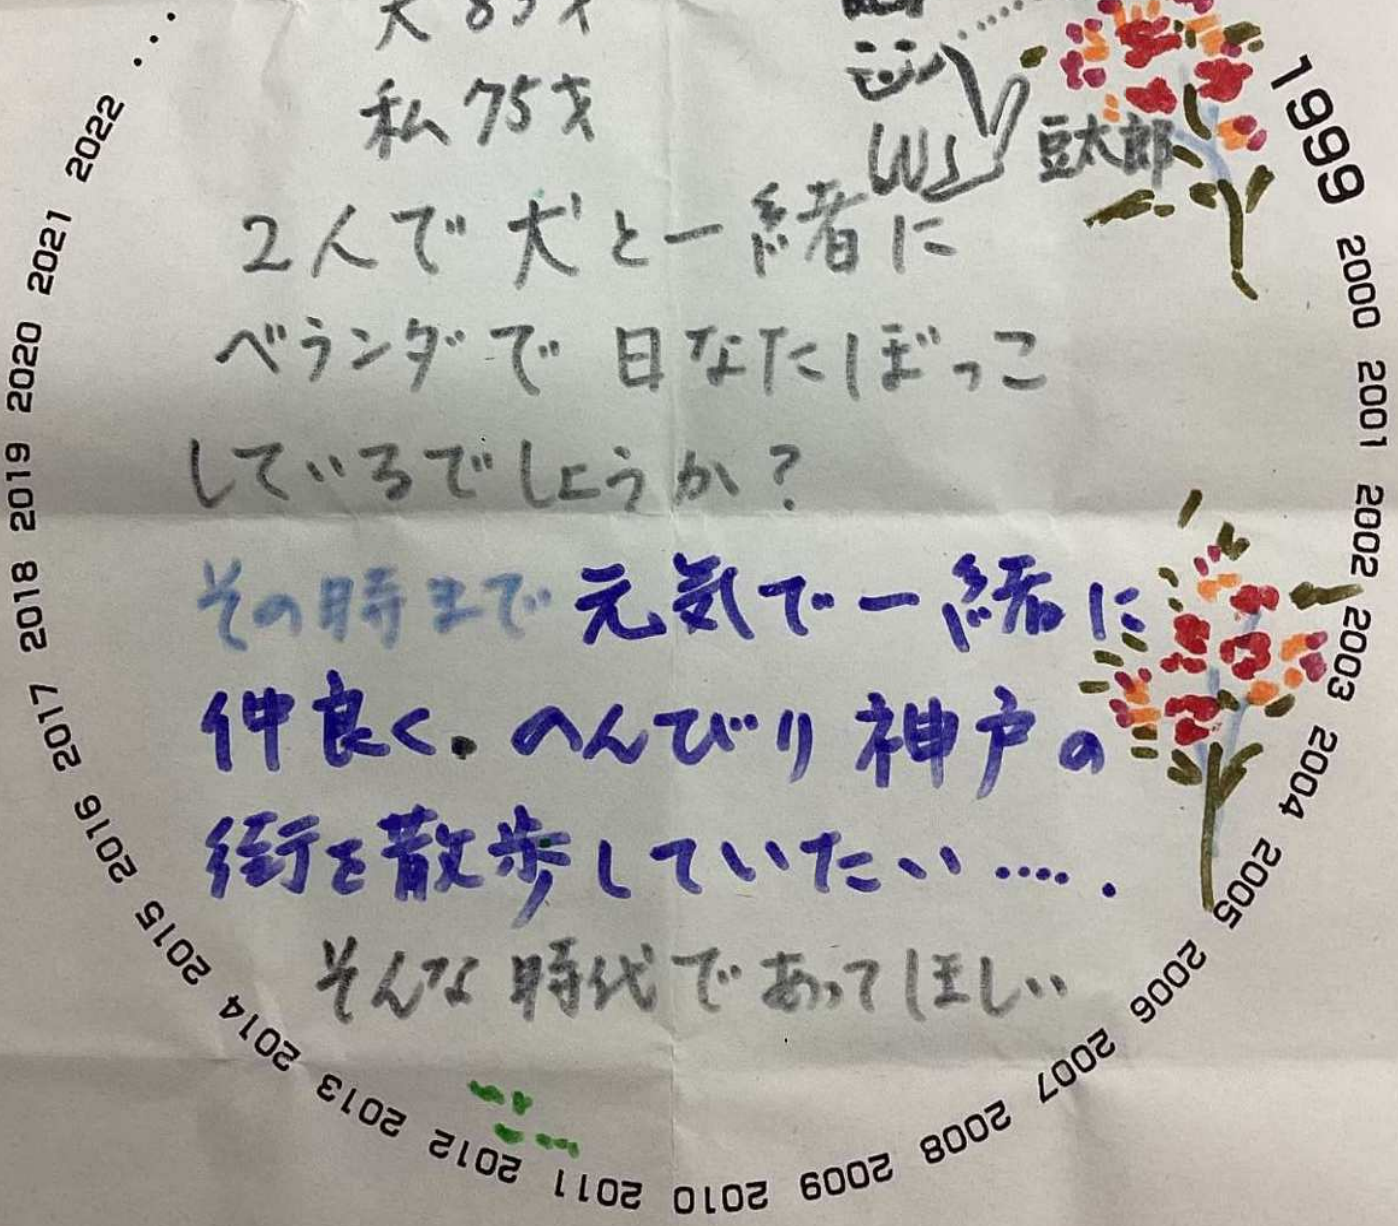 私 75才
豆太郎
2人で犬と一緒に
ベランダで日なたぼっこ
しているでしょうか?
その時まで元気で一緒に
仲良く。のんびり神戸の
街を散歩していたい…..
そんな時代であってほしい
1999 2000 2001 2002 2003 2004 2005 2006 2007 2008 2009 2010 2011 2012 2013 2014 2015 2016 2017 2018 2019 2020 2021 2022 …